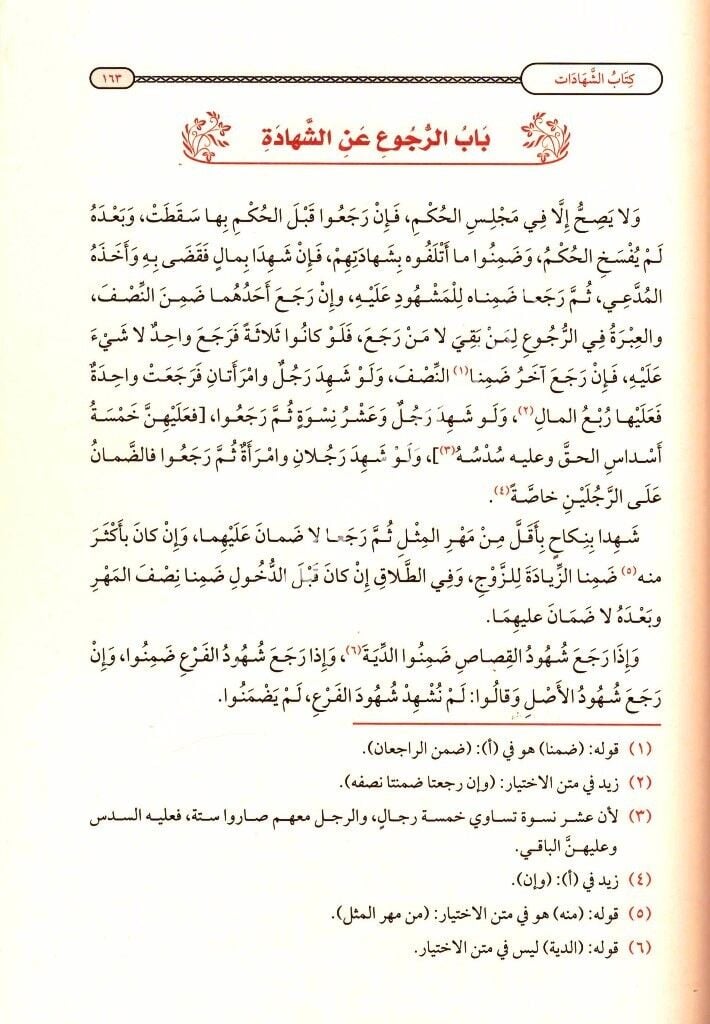 كِتَابُ الشَّهَادَات
١٦٣
بَابُ الرُّجُوعِ عَنِ الشَّهَادَةِ
وَلا يَصِحُّ إِلَّا فِي مَجْلِسِ الحُكْمِ، فَإِنْ رَجَعُوا قَبْلَ الحُكْمِ بِها سَقَطَتْ، وَبَعْدَهُ
لَمْ يُفْسَخِ الحُكْمُ، وَضَمِنُوا ما أَتْلَفُوه بِشَهادَتِهِمْ، فَإِنْ شَهِدَا بِمالٍ فَقَضَى بِهِ وَأَخَذَهُ
المُدَّعِي، ثُمَّ رَجَعا ضَمِناه لِلْمَشْهُودِ عَلَيْهِ، وإِنْ رَجَعَ أَحَدُهُما ضَمِنَ النِّصْفَ،
والعِبْرَةُ فِي الرُّجُوعِ لِمَنْ بَقِيَ لا مَنْ رَجَعَ، فَلَوْ كانُوا ثَلاثَةً فَرَجَعَ واحِدٌ لا شَيْءَ
عَلَيْهِ، فَإِنْ رَجَعَ آخَرُ ضَمِنا(١) النِّصْفَ، وَلَوْ شَهِدَ رَجُلٌ وامْرَأَتانِ فَرَجَعَتْ واحِدَةٌ
فَعَلَيْها رُبُعُ المالِ(٢)، وَلَو شَهِدَ رَجُلٌ وَعَشْرُ نِسْوَةٍ ثُمَّ رَجَعُوا، [فعَلَيْهِنَّ خَمْسَةُ
أَسْداسِ الحقِّ وعليه سُدْسُهُ(٣)]، وَلَوْ شَهِدَ رَجُلانِ وامْرَأَةٌ ثُمَّ رَجَعُوا فالضَّمانُ
عَلَى الرَّجُلَيْنِ خاصَّةً(٤).
شَهِدا بِنِكاحٍ بِأَقَلَّ مِنْ مَهْرِ المِثْلِ ثُمَّ رَجَعا لا ضَمانَ عَلَيْهِما، وَإِنْ كانَ بأَكْثَرَ
منه(٥) ضَمِنا الزِّيادَةَ لِلزَّوْجِ، وَفِي الطَّلاقِ إِنْ كانَ قَبْلَ الدُّخُولِ ضَمِنا نِصْفَ المَهْرِ
وبَعْدَهُ لا ضَمَانَ عليهِمَا.
وَإِذَا رَجَعَ شُهُودُ القِصاصِ ضَمِنُوا الدِّيَةَ(٦)، وَإِذا رَجَعَ شُهُودُ الفَرْعِ ضَمِنُوا، وَإِنْ
رَجَعَ شُهُودُ الأَصْلِ وَقالُوا: لَمْ نُشْهِدْ شُهُودَ الفَرْعِ، لَمْ يَضْمَنُوا.
(١) قوله: (ضمنا) هو في (أ): (ضمن الراجعان).
(٢) زيد في متن الاختيار: (وإن رجعتا ضمنتا نصفه).
(٣) لأن عشر نسوة تساوي خمسة رجالٍ، والرجل معهم صاروا ستة، فعليه السدس
وعليهنَّ الباقي.
(٤) زيد في (أ): (وإن).
(٥) قوله: (منه) هو في متن الاختيار: (من مهر المثل).
(٦) قوله: (الدية) ليس في متن الاختيار.